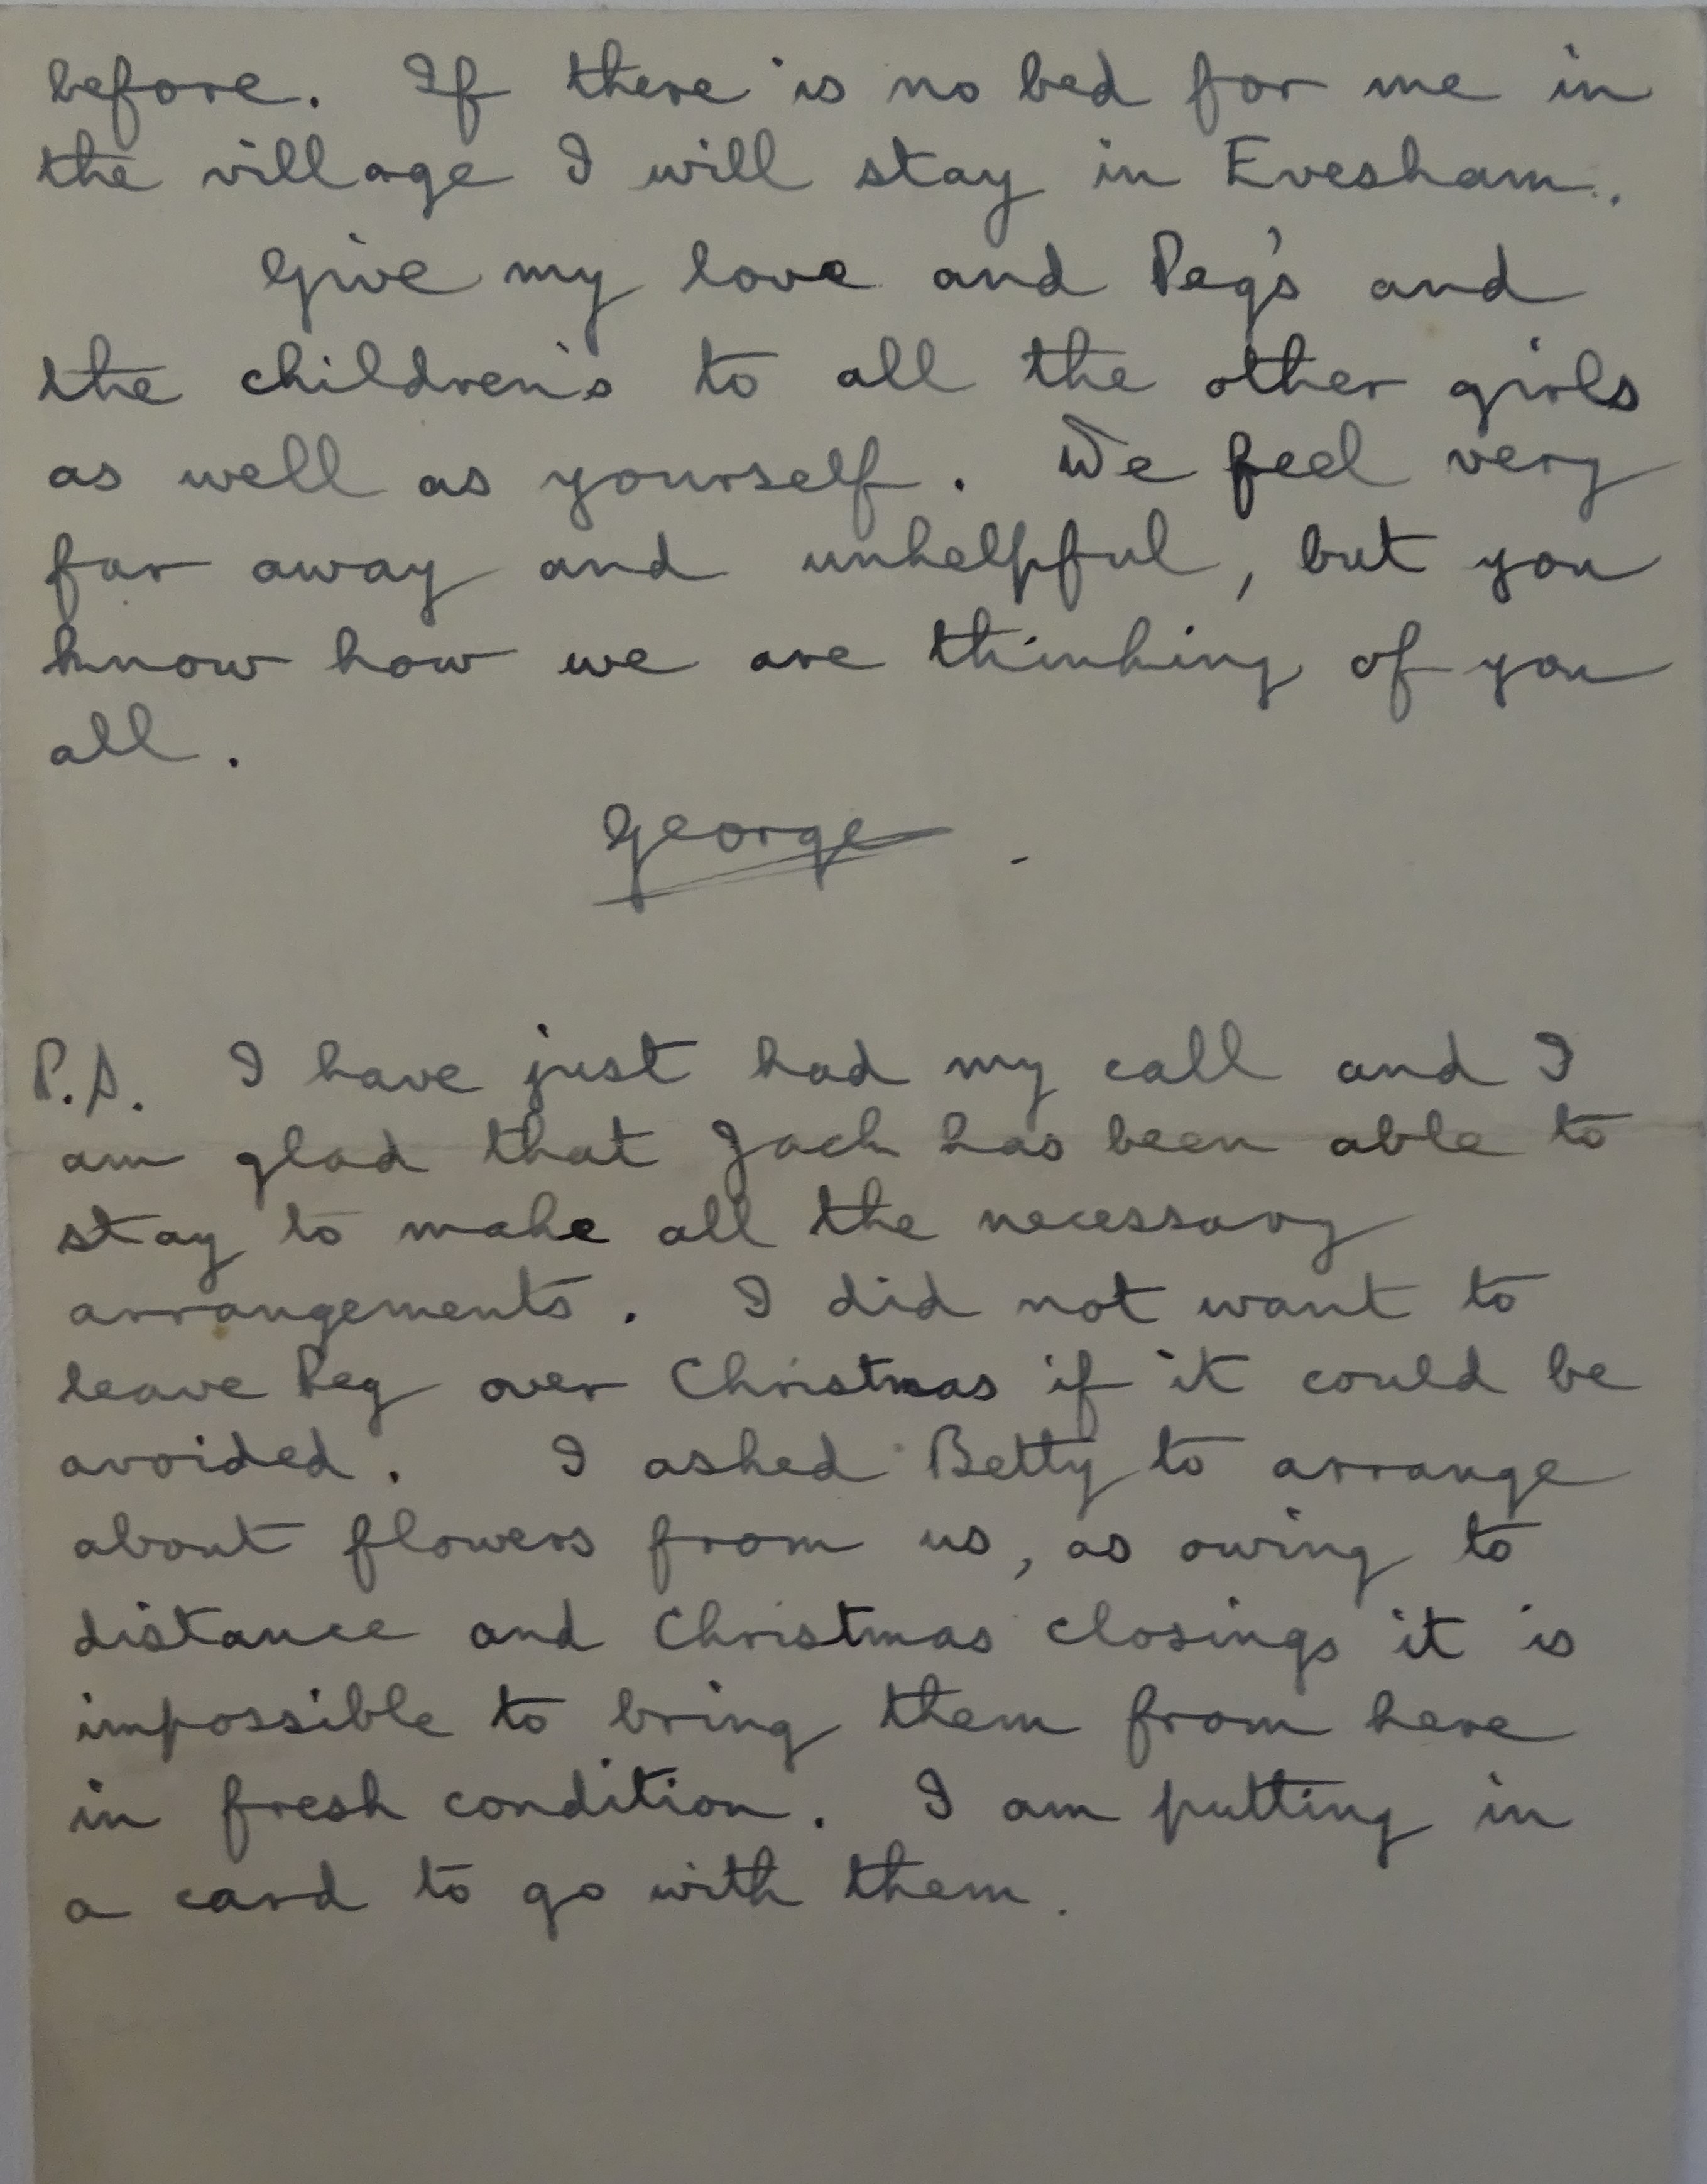 before. If there is no bed for me in
the village I will stay in Evesham.
Give my love and Peg's and
the children's to all the other girls
as well as yourself. We feel very
far away and unhelpful, but you
know how we are thinking of you
all.
George
P.S. I have just had my call and I
am glad that Jack has been able to
stay to make all the necessary
arrangements. I did not want to
leave Peg over Christmas if it could be
avoided. I asked Betty to arrange
about flowers from us, as owing to
distance and Christmas closings it is
impossible to bring them from here
in fresh condition. I am putting in
a card to go with them.